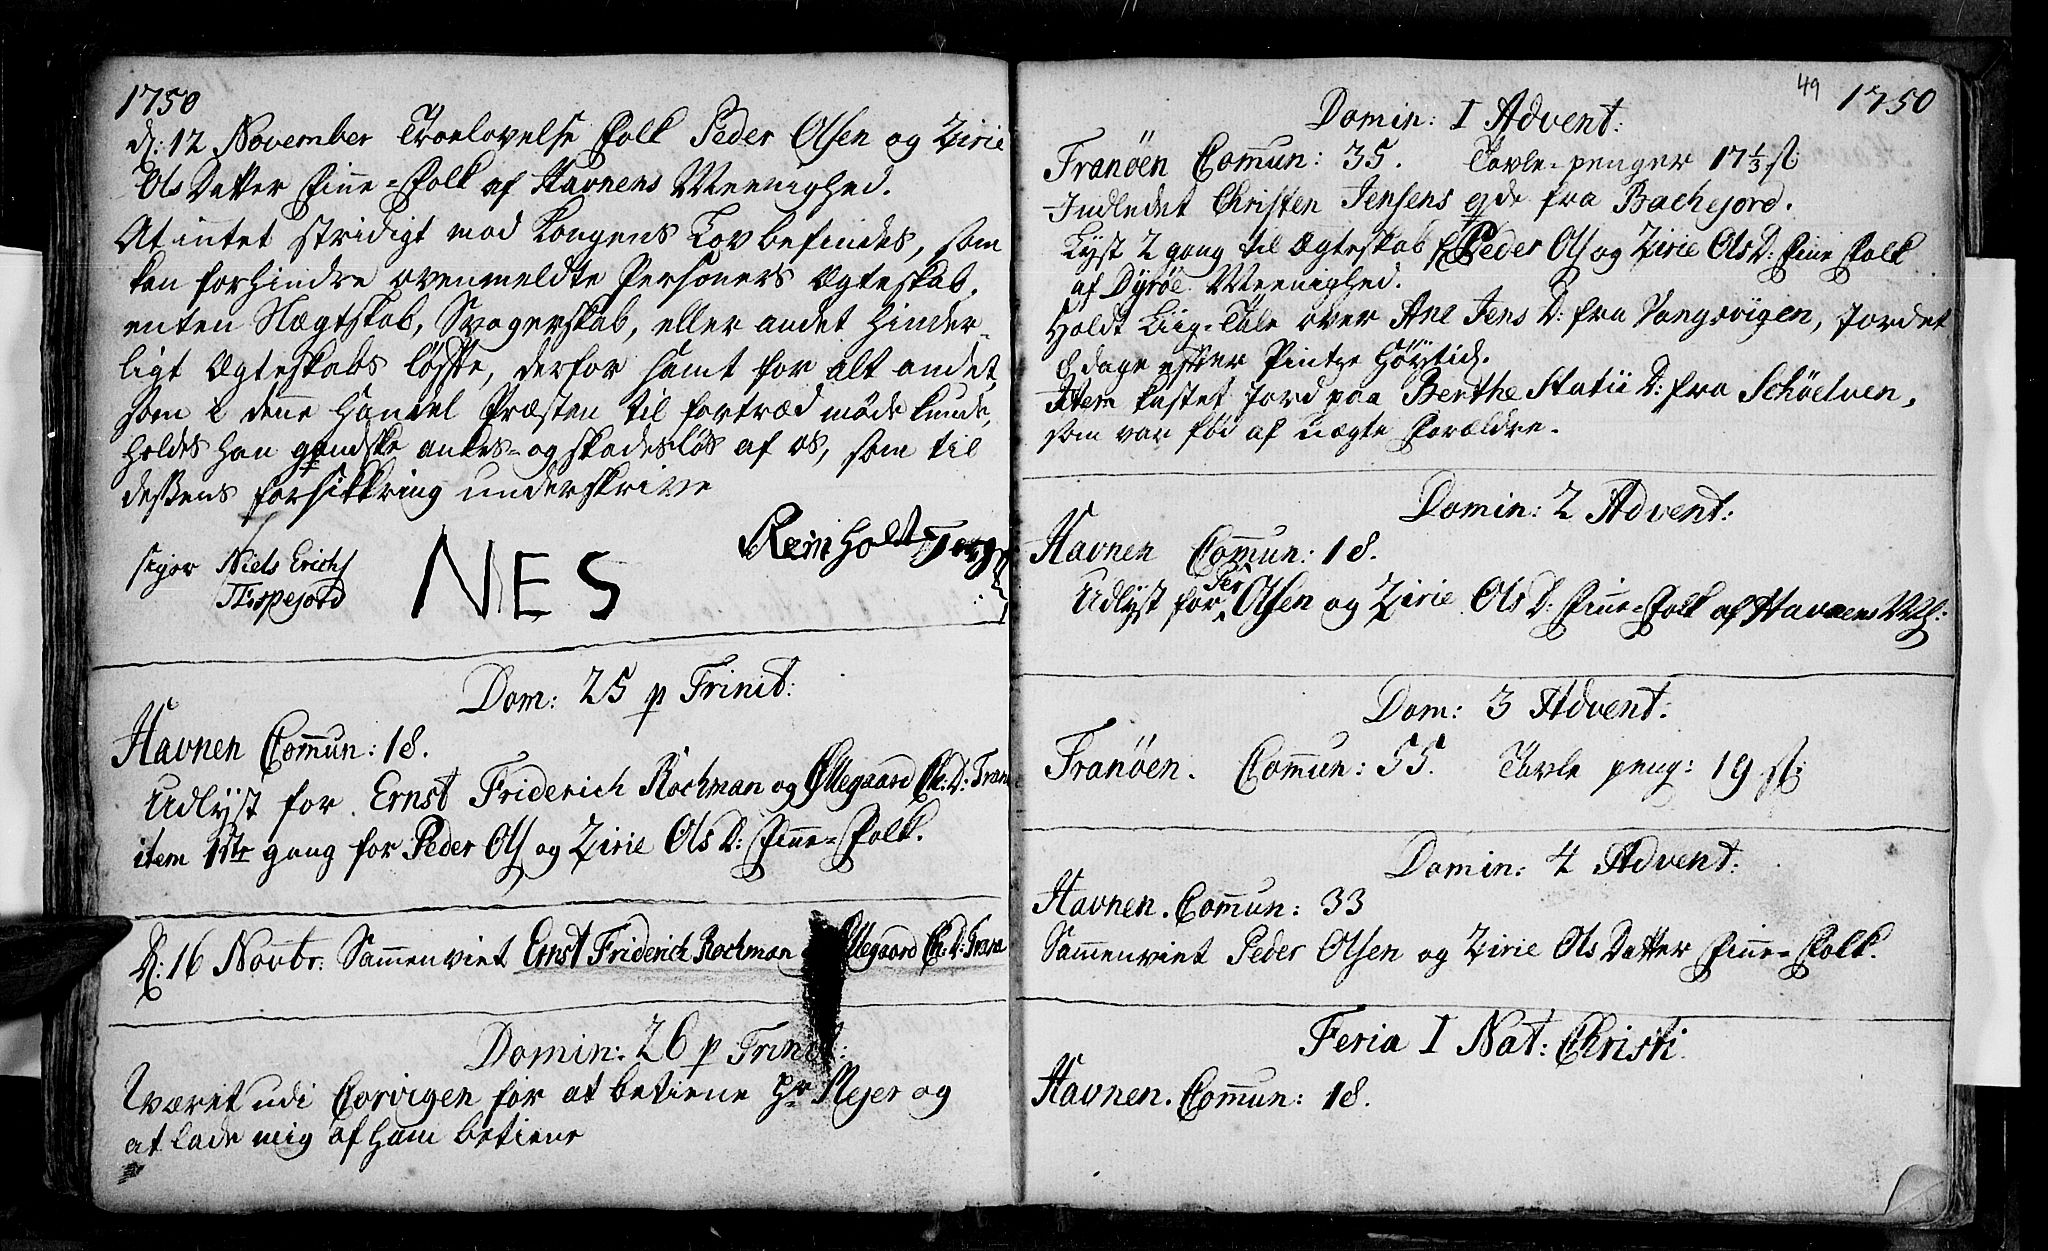 1750
d: 12 November Troelovelse Folk Peder Olsen og Zirie
Ols Datter Finne-Folk af Havnens Meenighed.
At intet stridigt mod Kongens Lov befindes, som
kan forhindre ovenmeldte Personers Ægteskab,
enten Slægtskab, Svogerskab, eller andet hinder-
ligt Ægteskabs løffte, derfor samt for alt andet,
som i denne Handel Præsten til fortræd møde kunde,
holdes han gandske ankes- og skadesløs af os, som til
dessens forsikkring underskrive
Niels Erichs
Tispejord
NES
Reinholdt
Dom: 25 p Trinit:
Havnen Commun: 18.
Udlyst for Ernst Friderich Rochman og Øllegaard Ch. D: Trane
item 1ste gang for Peder Ols og Zirie Ols D: Finne-Folk.
D: 16 Novbr: Sammenviet Ernst Friderich Rochman Øllegaard Ch. D: Trane
Domin: 26 p Trinit:
Været udi Torvigen for at betiene Hr Mejer og
at lade mig af ham betiene
49 1750
Domin: I Advent:
Tranöen Commun: 35. Tavle-penger 17 1/3 s
Indledet Christen Jensens qde fra Bachejord.
Lyst 2 gang til Ægteskab f Peder Ols og Zirie Ols D: Finne Folk
af Dyröe Meenighed.
Holdt Liig-Tale over Ane Jens D: fra Vangsvigen, jordet
8 dage efter Pintze Høytid.
Item kastet Jord paa Berthe Statii D: fra Schöelven,
som var fød af uægte Forældre.
Domin: 2 Advent:
Havnen Commun: 18.
Udlyst for Per Olsen og Zirie Ols D: Finne-Folk af Havnens Mh:
Dom: 3 Advent:
Tranöen. Commun: 55. Tavle peng: 19 s:
Domin: 4 Advent:
Havnen. Commun: 33
Sammenviet Peder Olsen og Zirie Ols Datter Finne-Folk.
Feria I Nat: Christi
Havnen. Commun: 18.